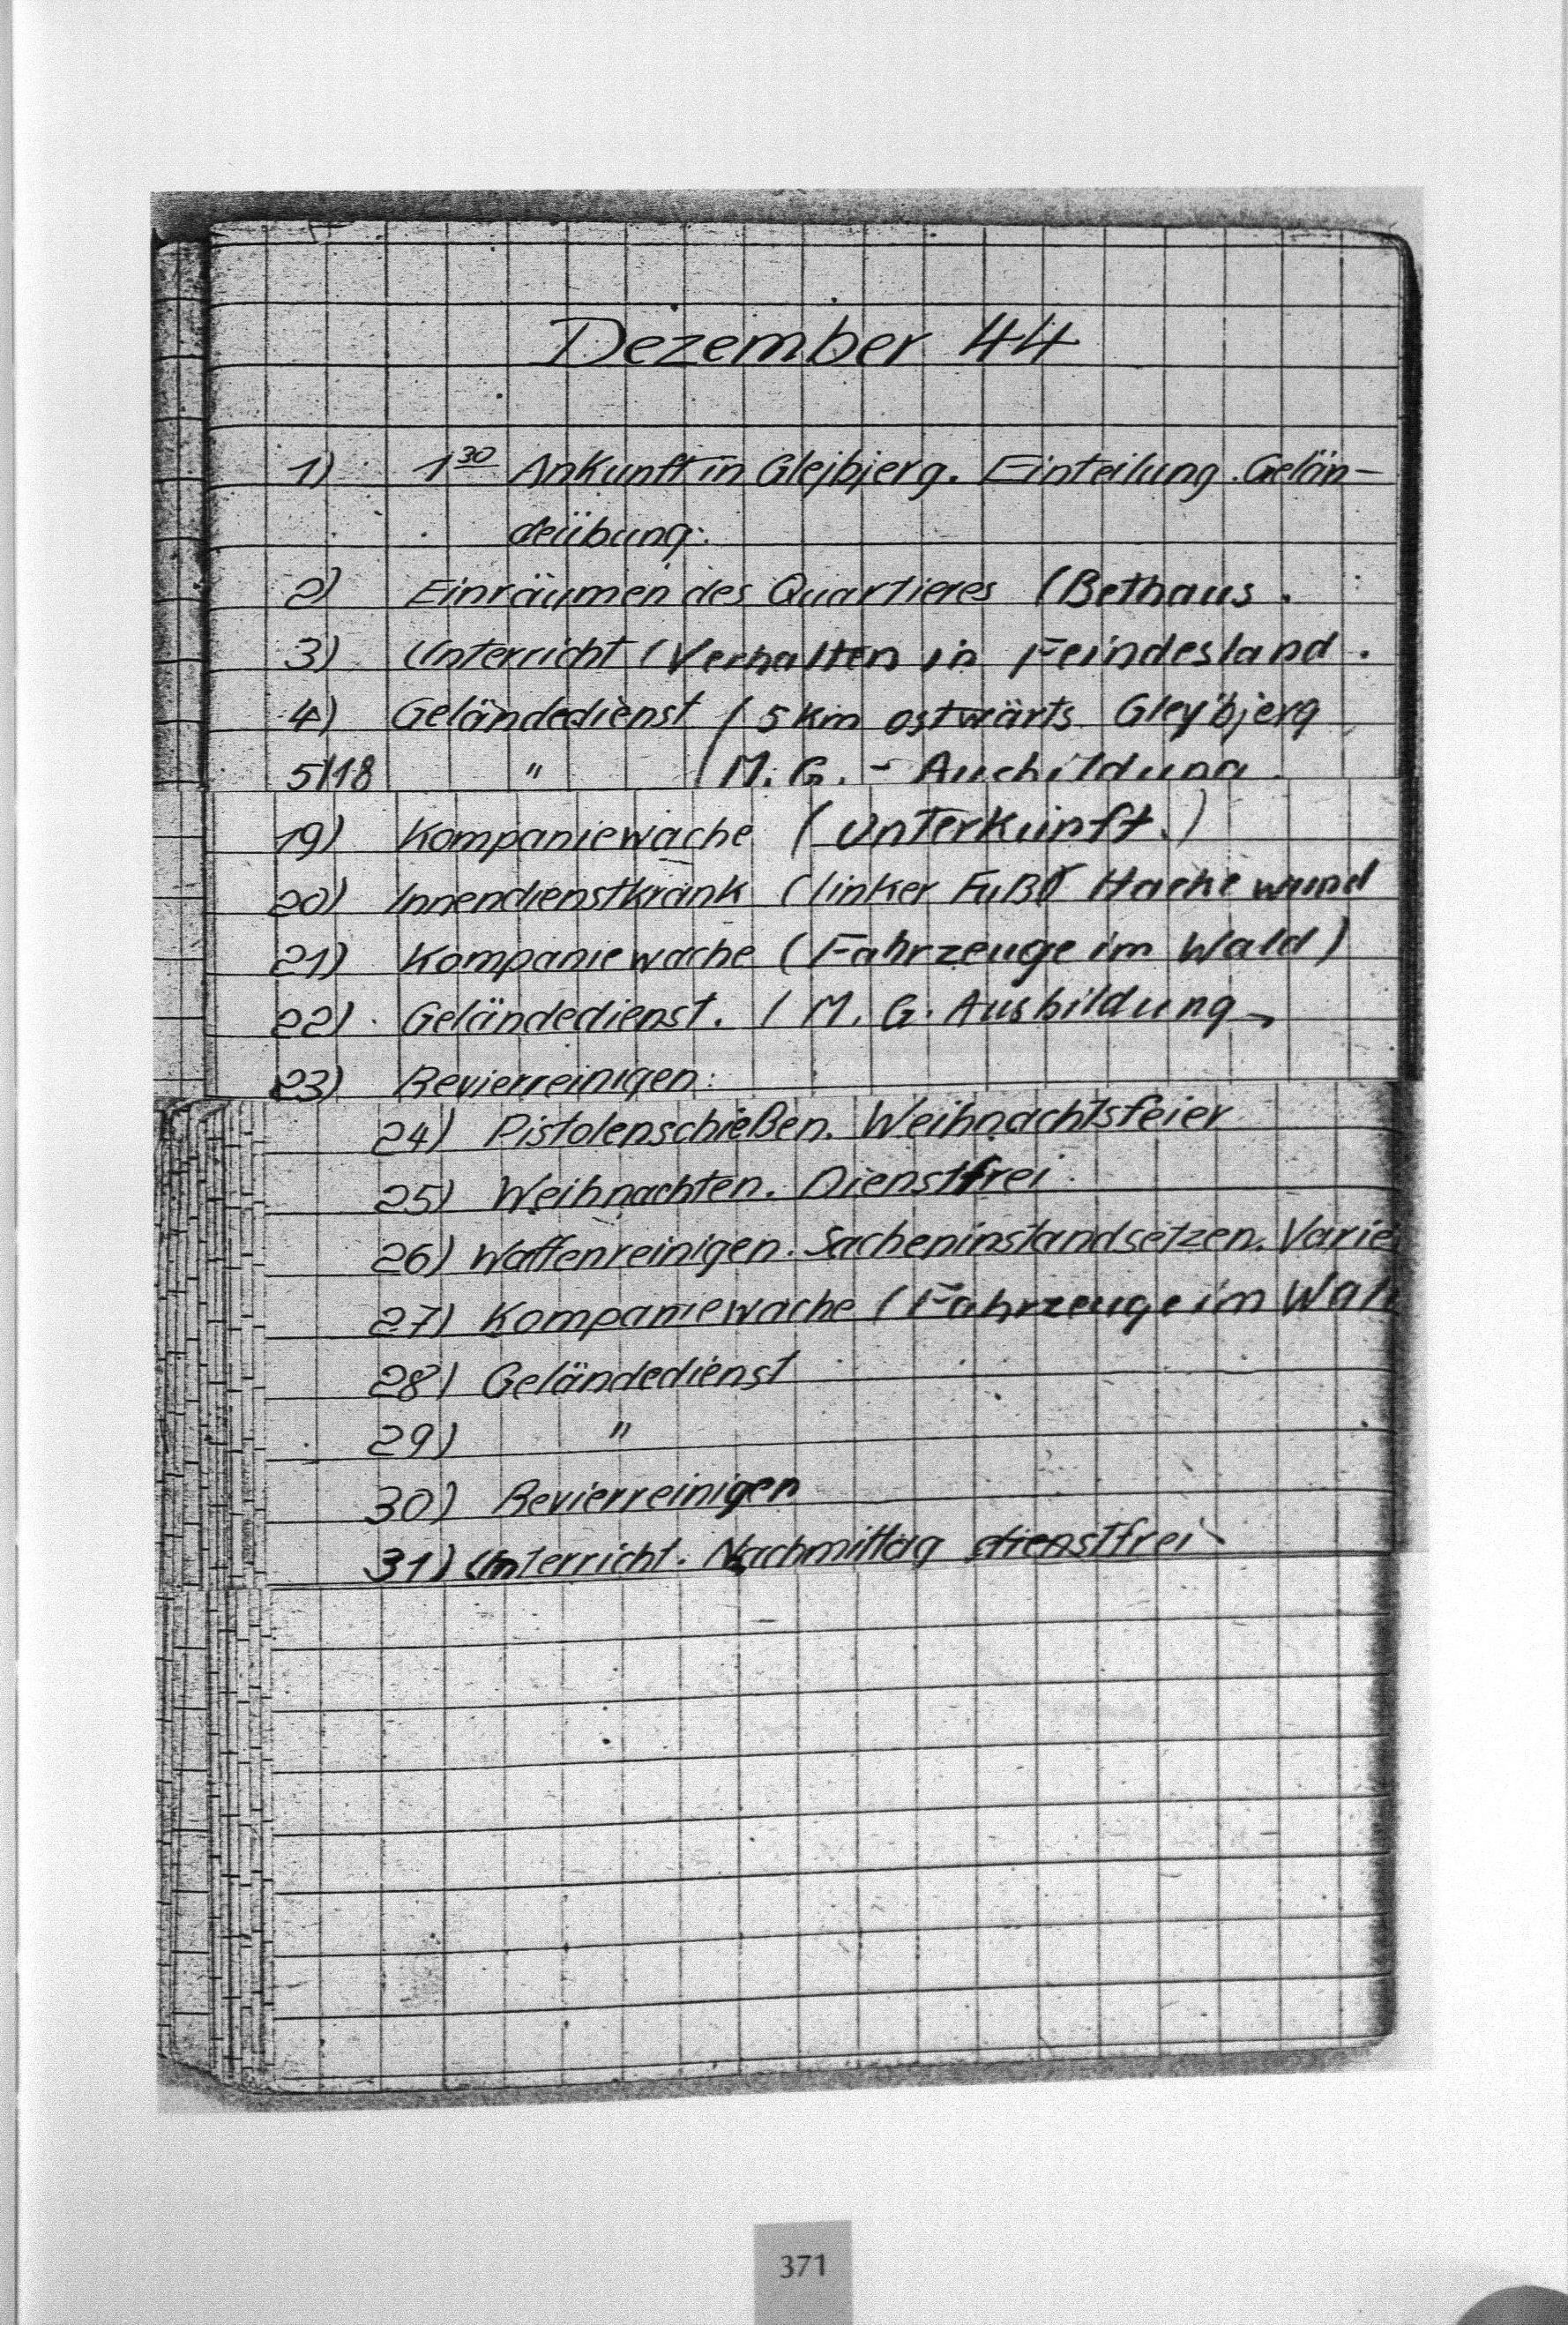 Dezember 44
1) 1 30 Ankunft in Glejbjerg. Einteilung. Gelän-
deübung.
2) Einräumen des Quartieres (Bethaus.
3) Unterricht (Verhalten in Feindesland.
4) Geländedienst (5 km ostwärts Glejbjerg
5/18 " (M. G. - Ausbildung.
19) Kompaniewache (Unterkunft.)
20) Innendienstkrank (linker Fuß Hacke wund
21) Kompaniewache (Fahrzeuge im Wald)
22) Geländedienst. (M. G. Ausbildung
23) Revierreinigen.
24) Pistolenschießen. Weihnachtsfeier
25) Weihnachten. Dienstfrei
26) Waffenreinigen. Sacheninstandsetzen. Varie
27) Kompaniewache (Fahrzeuge im Wal
28) Geländedienst
29) "
30) Revierreinigen
31) Unterricht. Nachmittag dienstfrei
371